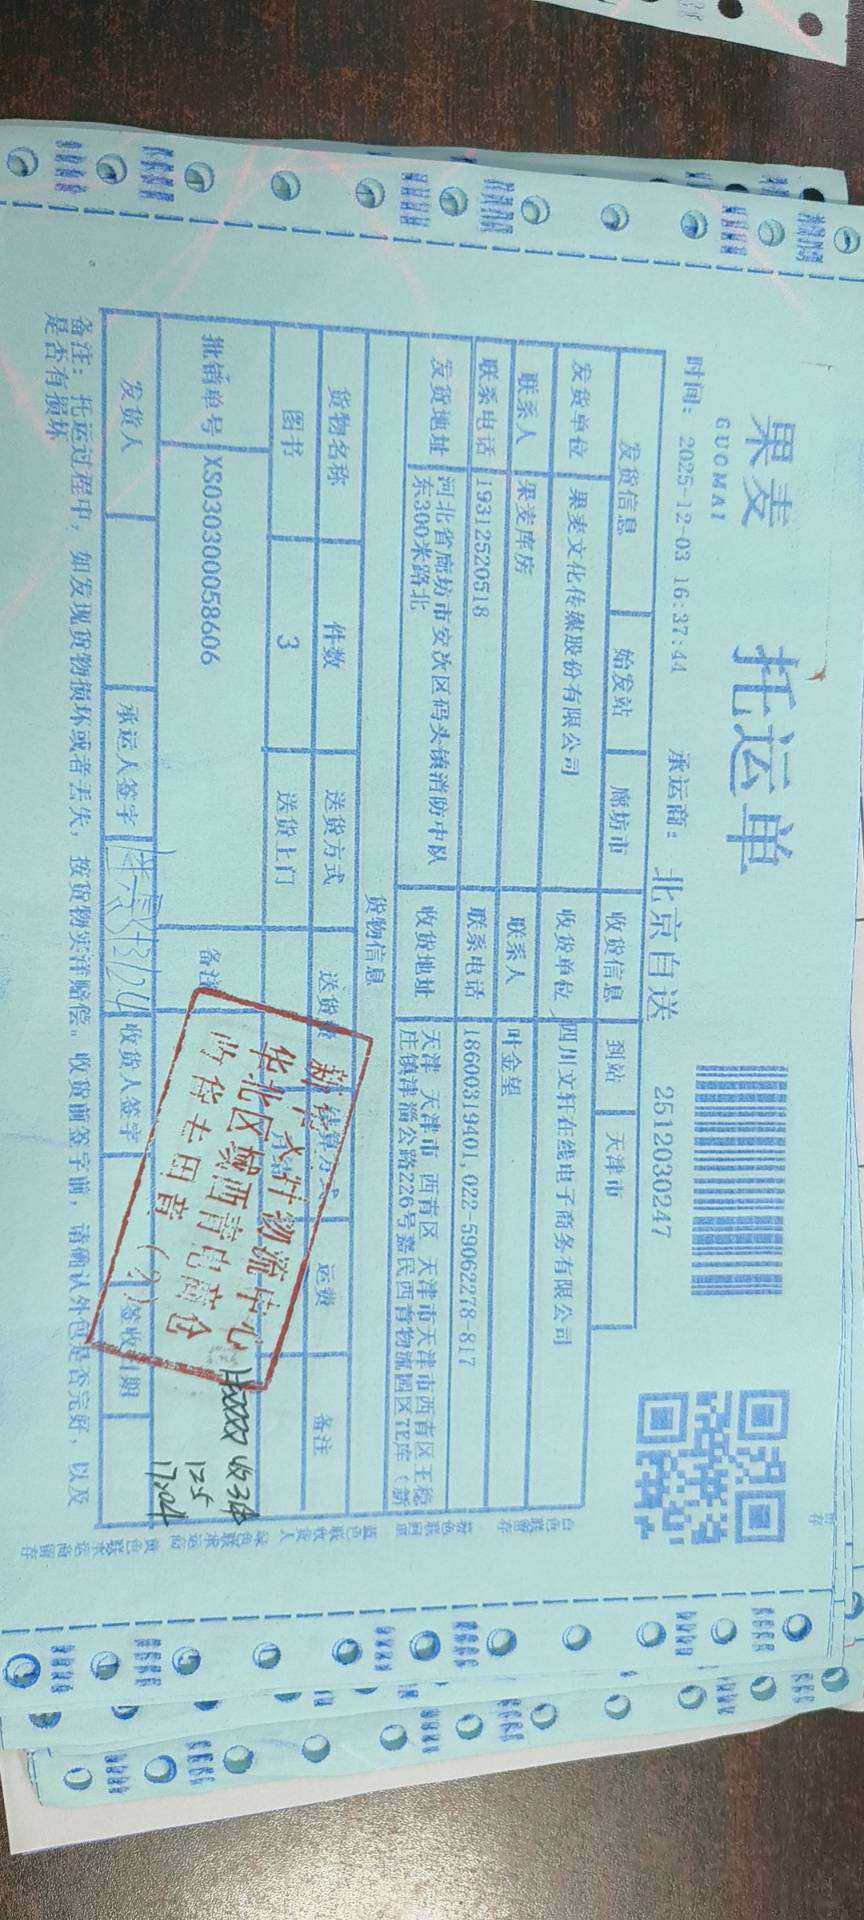 果麦
GUOMAI
托运单
2512030247
时间: 2025-12-03 16:37:44 承运商: 北京自送
发货信息 始发站 廊坊市 收货信息 到站 天津市
发货单位 果麦文化传媒股份有限公司 收货单位 四川文轩在线电子商务有限公司
联系人 果麦库房 联系人 叶金望
联系电话 19312520518 联系电话 18600319401,022-59062278-817
发货地址 河北省廊坊市安次区码头镇消防中队东300米路北 收货地址 天津 天津市 西青区 天津市天津市西青区王稳庄镇津淄公路226号嘉民西青物流园区7E库(新
货物信息
货物名称 件数 送货方式 送货 结算方式 运费 备注
图书 3 送货上门
批销单号 XS030300058606 备注
发货人 承运人签字 收货人签字 签收日期
备注: 托运过程中, 如发现货物损坏或者丢失, 按货物实洋赔偿。收货前签字前, 请确认外包是否完好, 以及
是否有损坏
物流中心
华北区域西青电商仓
收货专用章
收3包
12.5